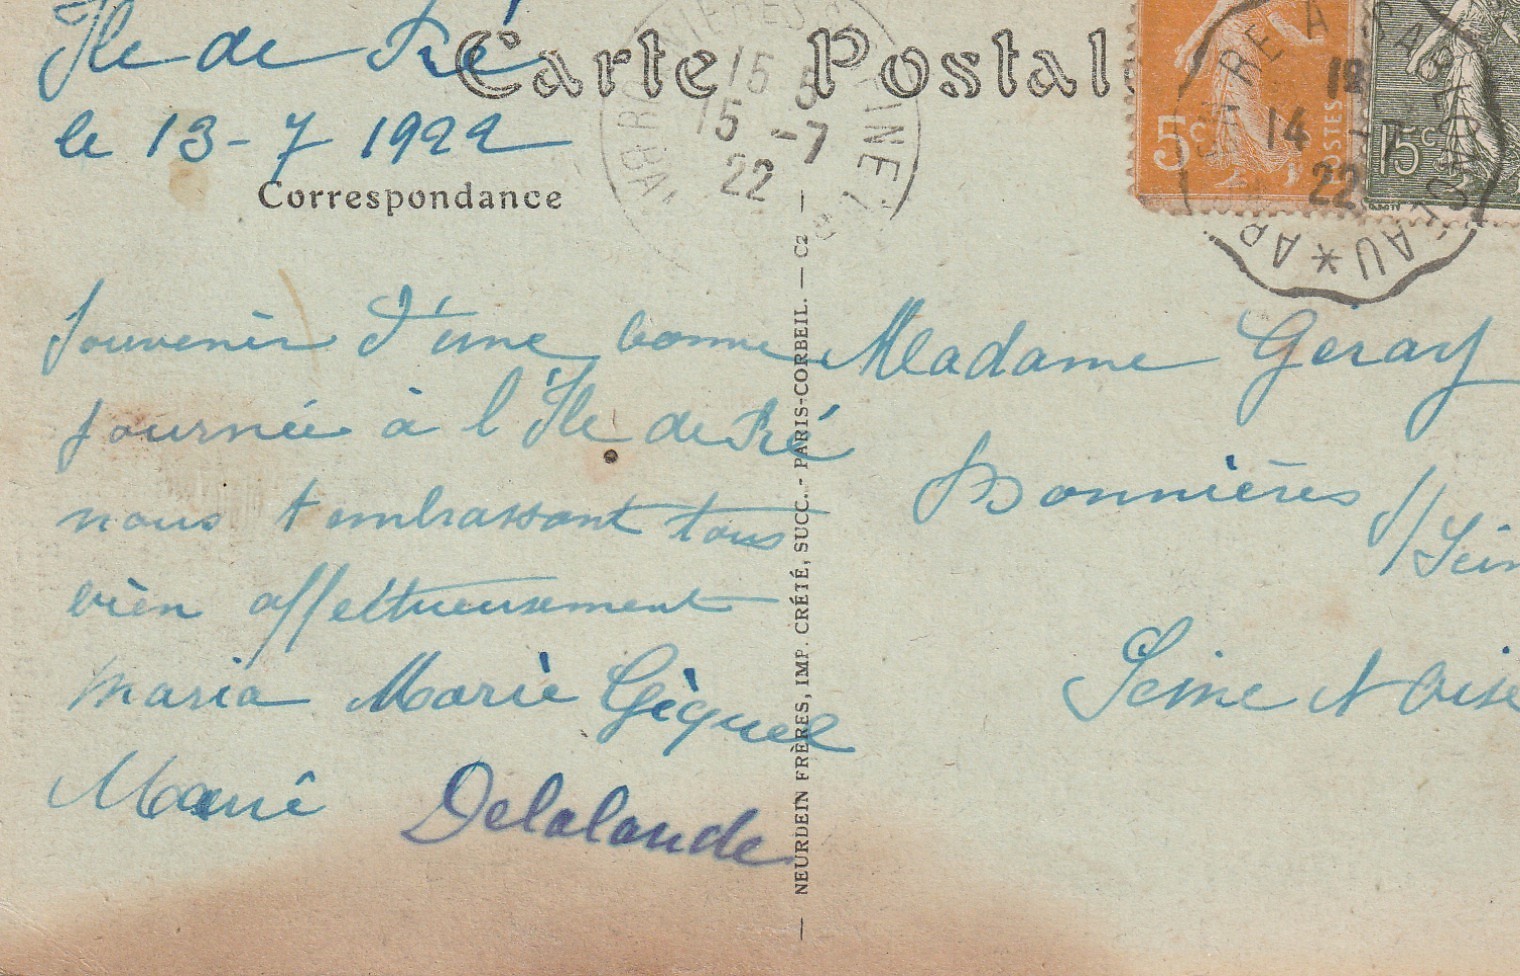 Île de Ré
Carte Postale
le 13-7 1922
Correspondance
15 5
15 -7
22
5c
POSTES
15c
12
14 -7
22
Souvenir d'une bonne
journée à l'Île de Ré
nous t embrassont tous
bien affectueusement
Maria Marie Gèquel
Marie Delalande
NEURDEIN FRÈRES, IMP. CRÉTÉ, SUCC. - PARIS-CORBEIL. — C2
Madame Géray
Bonnières s/Sein
Seine et Oise